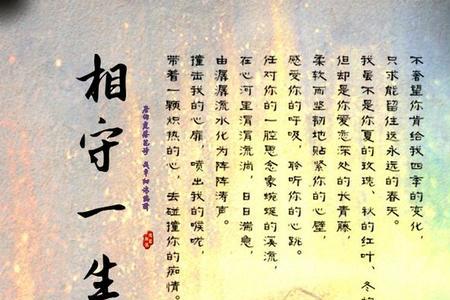 不奢望你肯给我四季的变化,
只求能留住这永远的春天。
我虽不是你夏的玫瑰、秋的红叶、冬
但却是你爱恋深处的长青藤,
柔软而坚韧地贴紧你的心壁,
感受你的呼吸,聆听你的心跳。
任对你的一腔思念象蜿蜒的溪流,
在心河里涓涓流淌,日日湍急,
由潺潺流水化为阵阵涛声。
撞击我的心扉,喷出我的喉咙,
带着一颗炽热的心,去碰撞你的痴情。
相守一生